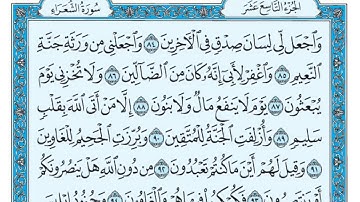 الجزء التاسع عشر سورة الشعراء
واجعل لي لسان صدق في الآخرين ٨٤ واجعلني من ورثة جنة
النعيم ٨٥ واغفر لأبي إنه كان من الضالين ٨٦ ولا تخزني يوم
يبعثون ٨٧ يوم لا ينفع مال ولا بنون ٨٨ إلا من أتى الله بقلب
سليم ٨٩ وأزلفت الجنة للمتقين ٩٠ وبرزت الجحيم للغاوين
٩١ وقيل لهم أين ما كنتم تعبدون ٩٢ من دون الله هل ينصرونكم
أو ينتصرون ٩٣ فكبكبوا فيها هم والغاوون ٩٤ وجنود إبليس